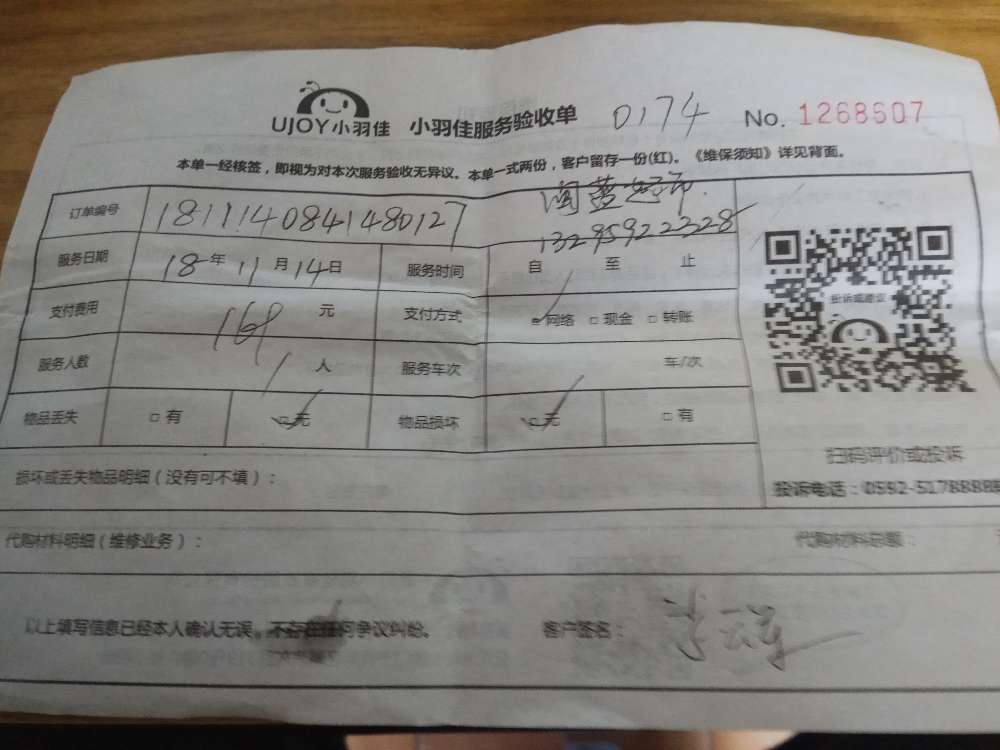 UJOY小羽佳 小羽佳服务验收单 0174 No. 1268607
本单一经核签，即视为对本次服务验收无异议。本单一式两份，客户留存一份(红)。《维保须知》详见背面。
订单编号 1811140841480127
13295922328
服务日期 18年11月14日 服务时间 自 至 止
支付费用 169 元 支付方式 网络 □ 现金 □ 转账
投诉或建议
服务人数 1人 服务车次 车/次
物品丢失 □ 有 □ 无 物品损坏 □ 无 □ 有
扫码评价或投诉
损坏或丢失物品明细（没有可不填）：
投诉电话：0592-5178888
代购材料明细（维修业务）： 代购材料总额：
以上填写信息已经本人确认无误，不存在任何争议纠纷。 客户签名：